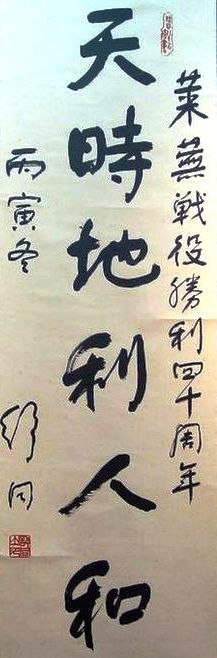 萊蕪戰役勝利四十周年
天時地利人和
丙寅冬
舒同